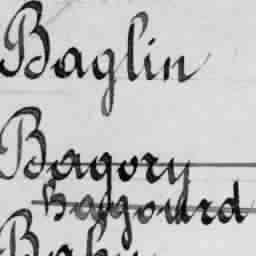 Baglin
Bagory
Bagourd